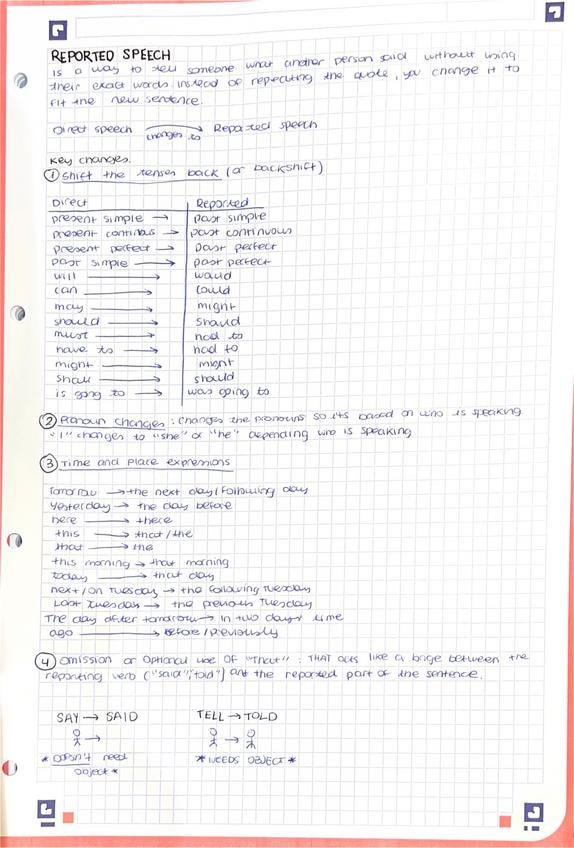 REPORTED SPEECH
is a way to tell someone what another person said without using
their exact words instead of repeating the quote, you change it to
fit the new sentence.
Direct speech changes to Reported speech
Key changes.
① Shift the tenses back (or backshift)
Direct Reported
present simple → past simple
present continous → past continuous
present perfect → past perfect
past simple → past perfect
will → would
can → could
may → might
should → should
must → had to
have to → had to
might → might
shall → should
is going to → was going to
② Pronoun changes: changes the pronouns so its based on who is speaking
"I" changes to "she" or "he" depending who is speaking
③ Time and Place expressions
Tomorrow → the next day/following day
Yesterday → the day before
here → there
this → that/the
that → the
this morning → that morning
today → that day
next/on Tuesday → the following Tuesday
Last Tuesday → the previous Tuesday
The day after tomorrow → in two days time
ago → before/previously
④ Omission or Optional use OF "That": THAT acts like a brige between the
reporting verb ("said","told") and the reported part of the sentence.
SAY → SAID TELL → TOLD
* Doesn't need
object *
* NEEDS OBJECT *